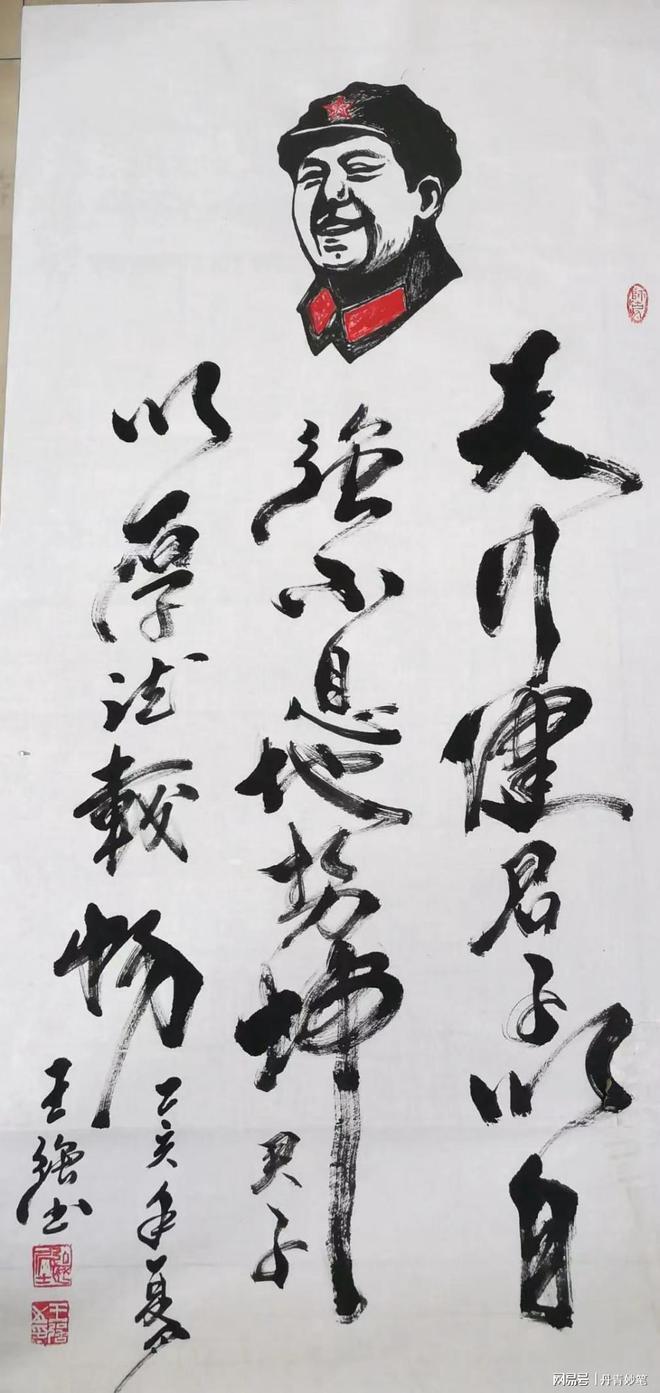 天行健君子以自
强不息地势坤君子
以厚德載物
己亥年夏
王强书
网易号 | 丹青妙笔